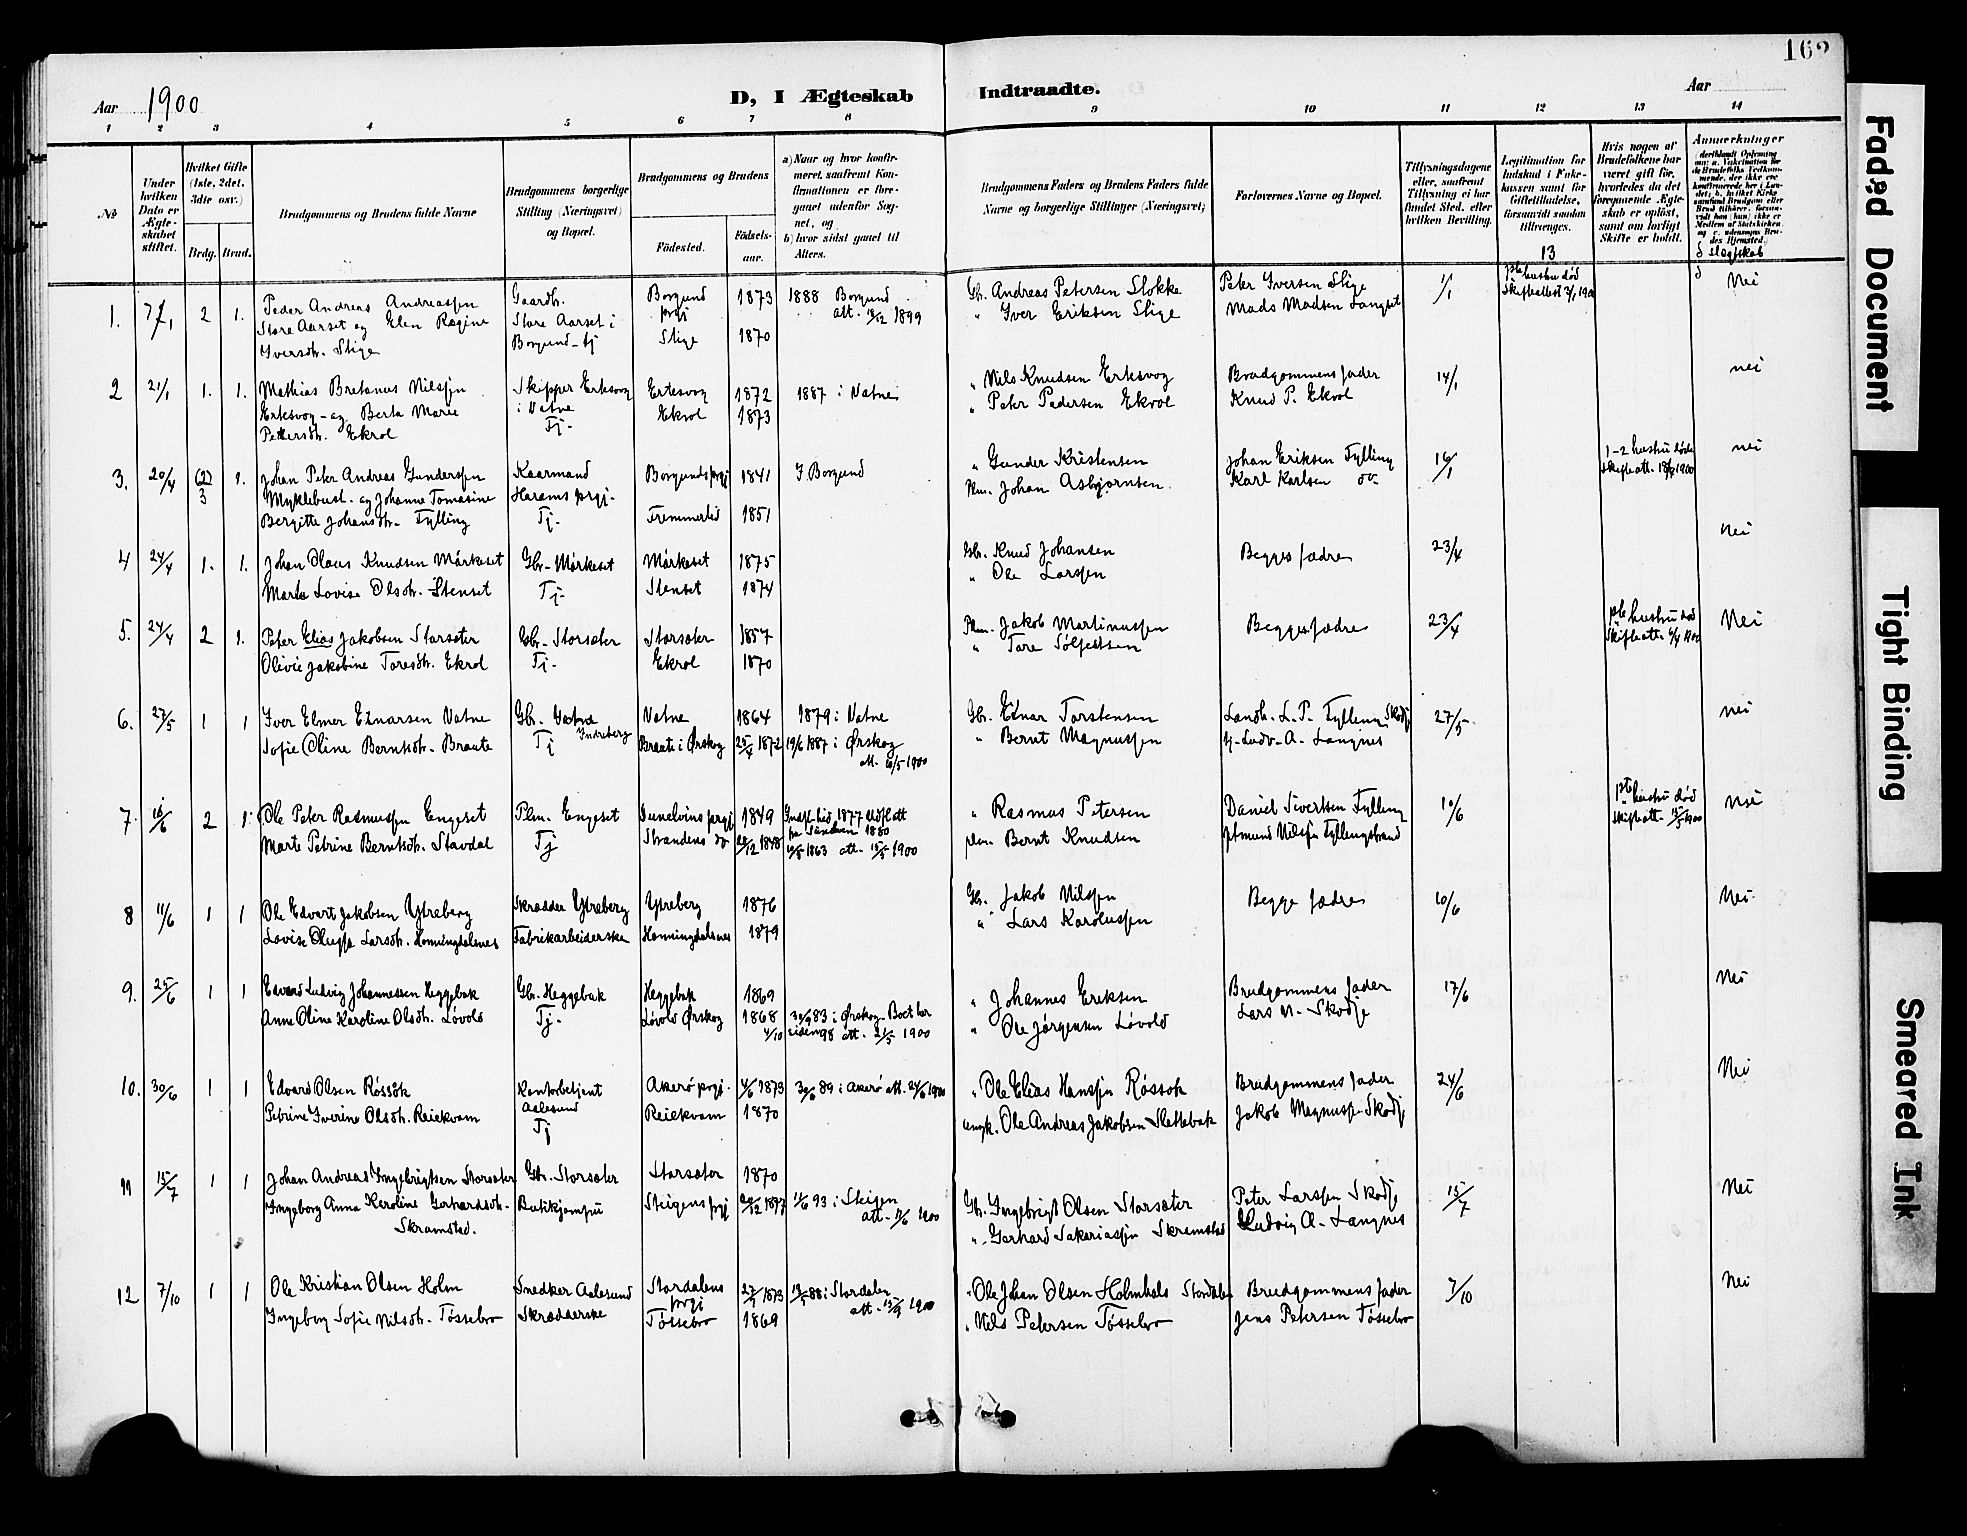 162
Aar 1900
D, I Ægteskab Indtraadte.
Aar
1 2 3 4 5 6 7 8 9 10 11 12 13 14
№
Under hvilken Dato er Ægteskabet stiftet.
Hvilket Gifte (1ste, 2det, 3die osv.)
Brdg. Brud.
Brudgommens og Brudens fulde Navne
Brudgommens borgerlige Stilling (Næringsvei) og Bopæl.
Brudgommens og Brudens
Fødested.
Fødselsaar.
a) Naar og hvor konfirmeret, saafremt Konfirmationen er foregaaet udenfor Sognet, og
b) hvor sidst gaaet til Alters.
Brudgommens Faders og Brudens Faders fulde Navne og borgerlige Stillinger (Næringsvei)
Forlovernes Navne og Bopæl.
Tillysningsdagene eller, saafremt Tillysning ei har fundet Sted, efter hvilken Bevilling.
Legitimation for Indskud i Enkekassen samt for Giftetilladelse, forsaavidt saadan tiltrænges.
Hvis nogen af Brudefolkene har været gift før, hvorledes da det foregaaende Ægteskab er opløst, samt om lovligt Skifte er holdt.
Anmærkninger
13
Slegtskab
1. 7/1 2 1. Peder Andreas Andreassen Gaardbr. Borgund 1873 1888 Borgund Gbr. Andreas Petersen Slokke Peter Iversen Slige 1/1 hustru død Nei
Store Aarset og Elen Regine Store Aarset i prgj att. 13/12 1899 " Iver Eriksen Slige Mads Madsen Langset
Iversdtr. Slige Borgund - Tj Slige 1870
2 21/1 1. 1. Mathias Bretanus Nilssen Skipper Erksvog Ertesvog 1872 1887 i Vatne " Nils Knudsen Erksvog Brudgommens fader 14/1 nei
Ertesvog - og Berta Marie i Vatne Ekrol 1873 " Peter Pedersen Ekrol Knud P. Ekrol
Pettersdtr. Ekrol Tj-
3. 20/4 (2) 3 1. Johan Peter Andreas Gundersen Kaarmand Borgunds prgj 1841 I Borgund " Gunder Kristensen Johan Eriksen Fylling 16/1 1-2 hustru døde nei
Myklebust - og Johanne Tomasine Harams prgj- Plm. Johan Asbjørnsen Karl Karlsen do
Bergitte Johansdtr. Fylling Tj- Fremmerlid 1851
4 24/4 1. 1. Johan Olaus Knudsen Mårkeset Gbr. Mårkeset Mårkeset 1875 Gbr. Knud Johansen Begges fædre 23/4 nei
Marte Lovise Olsdtr. Stenset Tj- Stenset 1874 " Ole Larssen
5. 24/4 2 1. Peter Elias Jakobsen Storsæter Gbr. Storsæter Storsæter 1857 Plm. Jakob Martinussen Begges fædre 23/4 hustru død Nei
Olivie Jakobine Toresdtr. Ekrol Tj- Ekrol 1870 " Tore Sølfestsen
6. 27/5 1 1 Iver Elmer Einarsen Vatne Gbr. Vatne Vatne 1864 1879 i Vatne Gbr. Einar Torstensen Lensm. L. P. Fylling Skodje 27/5 nei
Sofie Oline Berntsdtr. Braute Tj Indreberg Braute i Ørskog 25/4 1872 19/6 1887 i Ørskog " Bernt Magnussen kj. Ludv. A. Langnes
att. 20/5 1900
7. 16/6 2 1. Ole Peter Rasmussen Engeset Plm. Engeset prgj 1849 Indfl. hid 1877 Udfl. att " Rasmus Petersen Daniel Sivertsen Fylling 10/6 1ste hustru død nei
Marte Petrine Berntsdtr. Stavdal Tj Strandens do 1848 1863 att. 15/5 1900 plm. Bernt Knudsen Nilssen Fyllingstrand
8 11/6 1 1 Ole Edvart Jakobsen Ytreberg Skrædder Ytreberg Ytreberg 1876 Gbr. Jakob Nilssen Begge fædre 10/6 Nei
Lovise Oluffa Larsdtr. Honningdalsnes Fabrikarbeiderske Honningdalsnes 1879 " Lars Karolussen
9. 25/6 1 1 Edvard Ludvig Johannessen Heggebak Gbr. Heggebak Heggebak 1869 " Johannes Eriksen Brudgommens fader 17/6 Nei
Anne Oline Karoline Olsdtr. Løvold Tj- Løvold Ørskog 1868 4/10 30/9 83 i Ørskog Boet her " Ole Jørgensen Løvold Lars M. Skodje
siden 98 att. 21/5 1900
10. 30/6 1 1 Edvard Olsen Røssøk Kontorbetjent Akerø prgj. 4/6 1873 30/6 89 i Akerø att. 24/6 1900 " Ole Elias Hanssen Røssok Brudgommens fader 24/6 Nei
Petrine Iverine Olsdtr. Reiekvam Aalesund Tj Reiekvam 1870 ungk. Ole Andreas Jakobsen Slettebak Jakob Magnussen Skodje
11 15/7 1 1 Johan Andreas Ingebrigtsen Storsæter Gbr. Storsæter Storsæter 1870 Gbr. Ingebrigt Olsen Storsæter Peter Larssen Skodje 15/7 Nei
Ingeborg Anna Karoline Gerhardsdtr. Skramsted. Butikjomfru Steigens prgj 29/12 1877 11/6 93 i Steigen att. 17/6 1900 " Gerhard Sakariassen Skramstad Ludvig A. Langnes
12 7/10 1 1 Ole Kristian Olsen Holm Snedker Aalesund Stordalens prgj 1873 88 i Stordalen att. 1900 " Ole Johan Olsen Holmhols Stordalen Brudgommens fader 7/10 Nei
Ingeborg Sofie Nilsdtr. Tøssebro Skrædderske Tøssebro 1869 " Nils Petersen Tøssebro Jens Petersen Tøssebro
Faded Document
Tight Binding
Smeared Ink